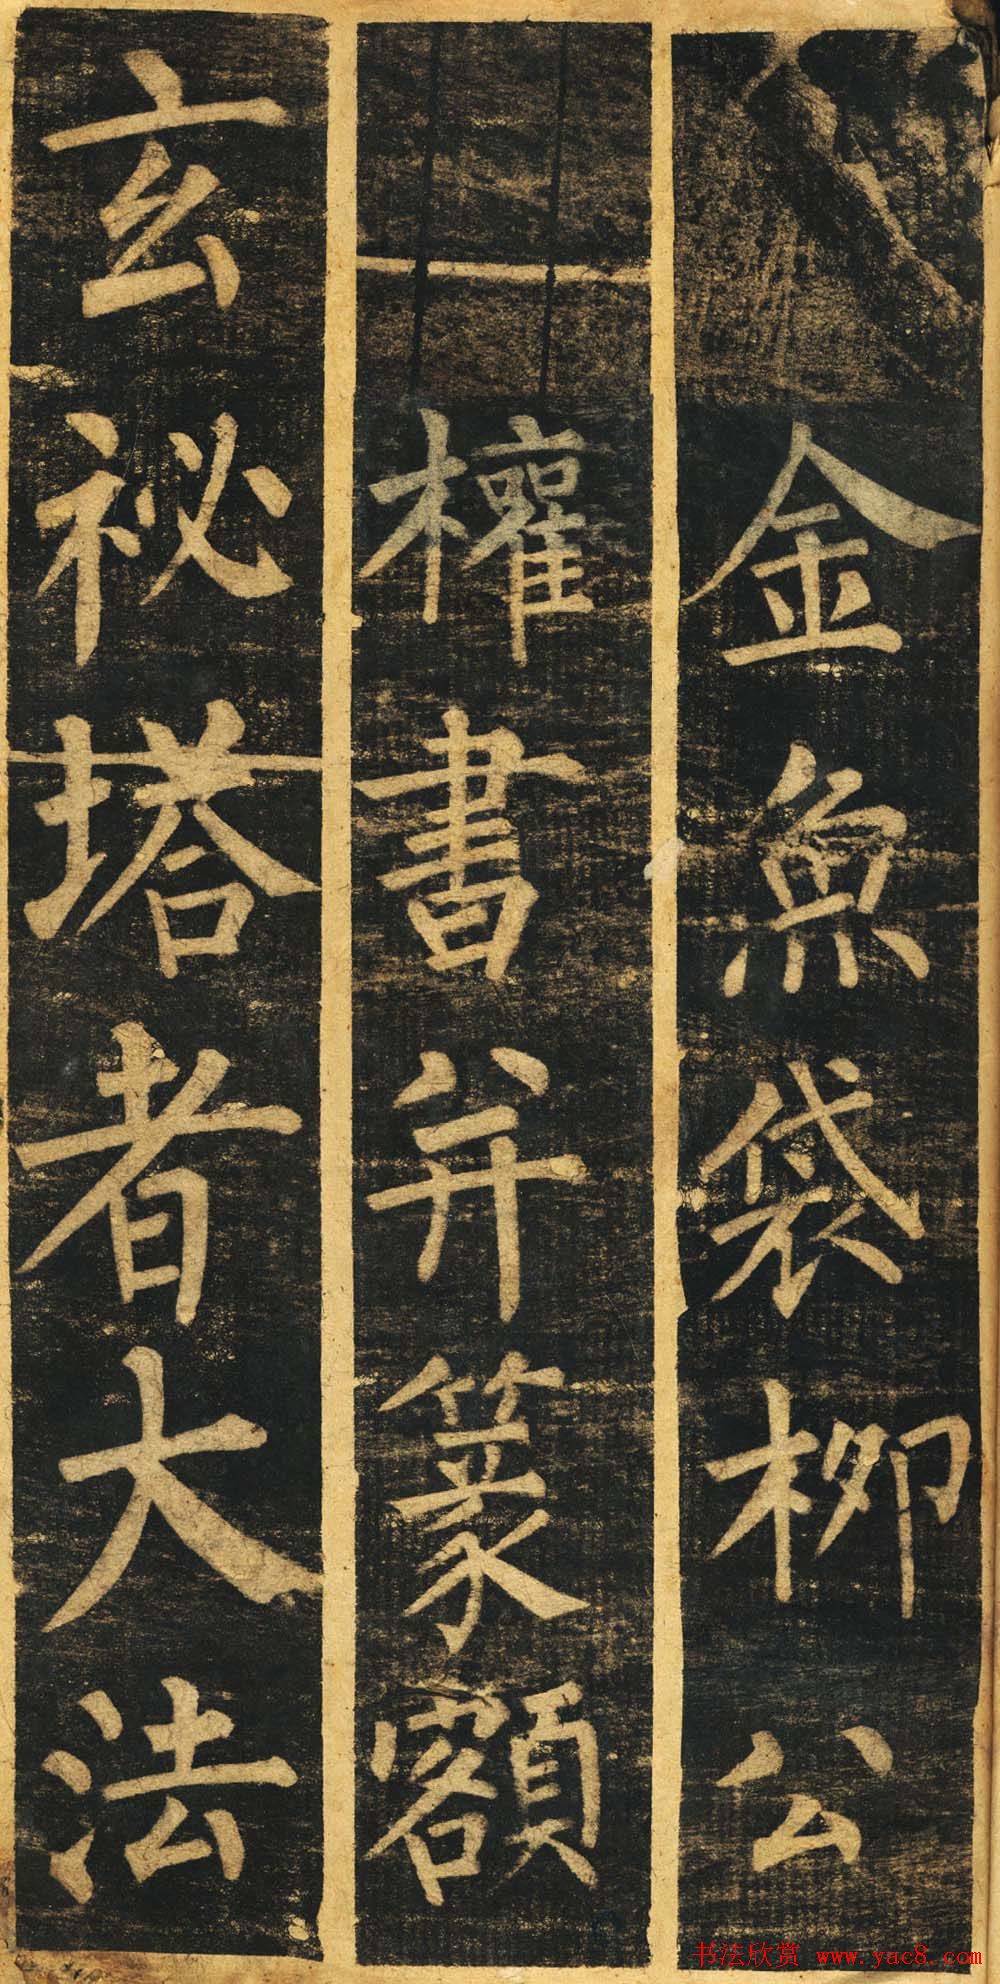 金魚袋柳公
權書并篆額
玄祕塔者大法
书法欣赏 www.yac8.com